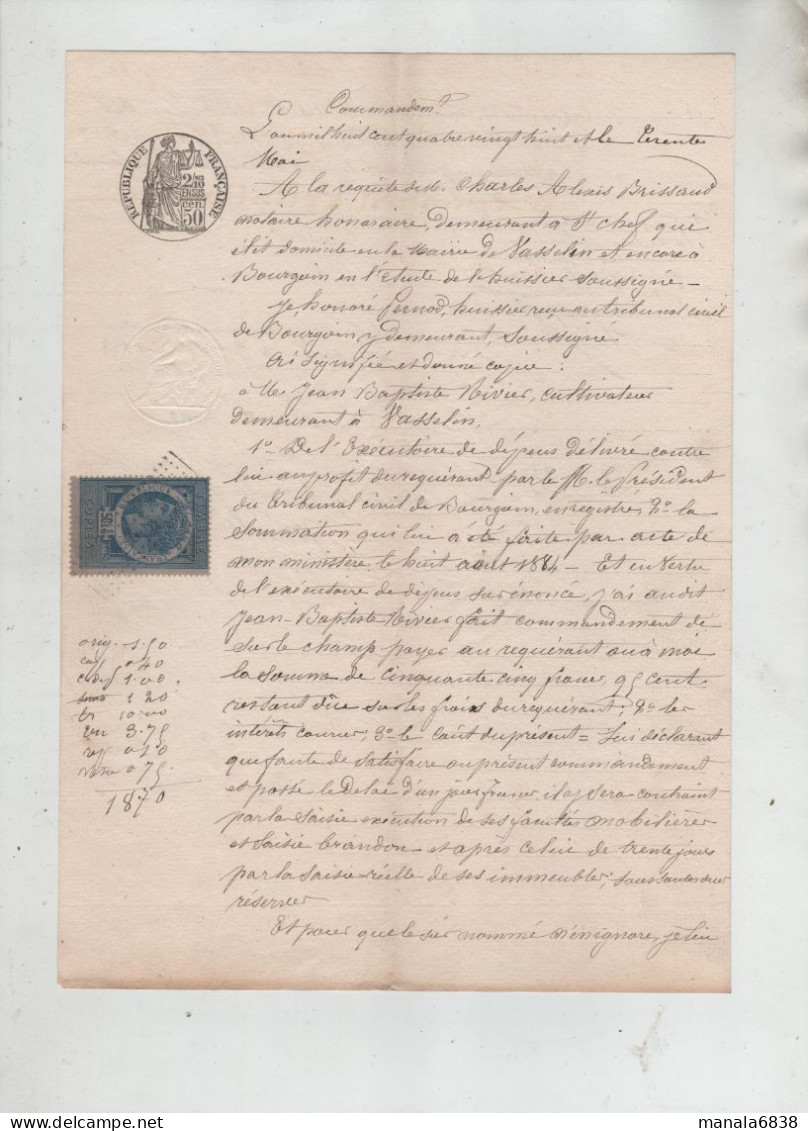 Commandemt
L'an mil huit cent quatre vingt huit et le trente
Mai
A la requête de M. Charles Alexis Brissaud
notaire honoraire, demeurant à St Chef qui
élit domicile en la Mairie de Vasselin et encore à
Bourgoin en l'étude de l'huissier soussigné —
Je, honoré Pernod, huissier reçu au tribunal civil
de Bourgoin y demeurant, soussigné
Ai signifié et donné copie :
à M. Jean Baptiste Rivier, cultivateur
demeurant à Vasselin,
1o De l'Exécutoire de dépens délivré contre
lui au profit du requérant par le M. le Président
du tribunal civil de Bourgoin, enregistré, 2o la
Sommation qui lui a été faite par acte de
mon ministère le huit août 1884 — Et en vertu
de l'exécutoire de dépens susénoncé, j'ai audit
Jean-Baptiste Rivier fait commandement de
sur le champ payer au requérant ou à moi
la somme de cinquante cinq francs 95 cent
restant due sur les frais du requérant ; 2o les
intérêts courus ; 3o le coût du présent = Lui déclarant
que faute de satisfaire au présent commandement
et passé le delai d'un jour franc, il y sera contraint
par la saisie exécution de ses facultés mobilières
et saisie brandon — et après celui de trente jours
par la saisie réelle de ses immeubles ; sous toutes
réserves
Et pour que le sus nommé n'en ignore, je lui
RÉPUBLIQUE FRANÇAISE
2/10
EN SUS
50 cen.
COPIES
orig. 1.50
0.40
1.00
1 20
10.00
3.75
0.10
0.75
1870
manala6838